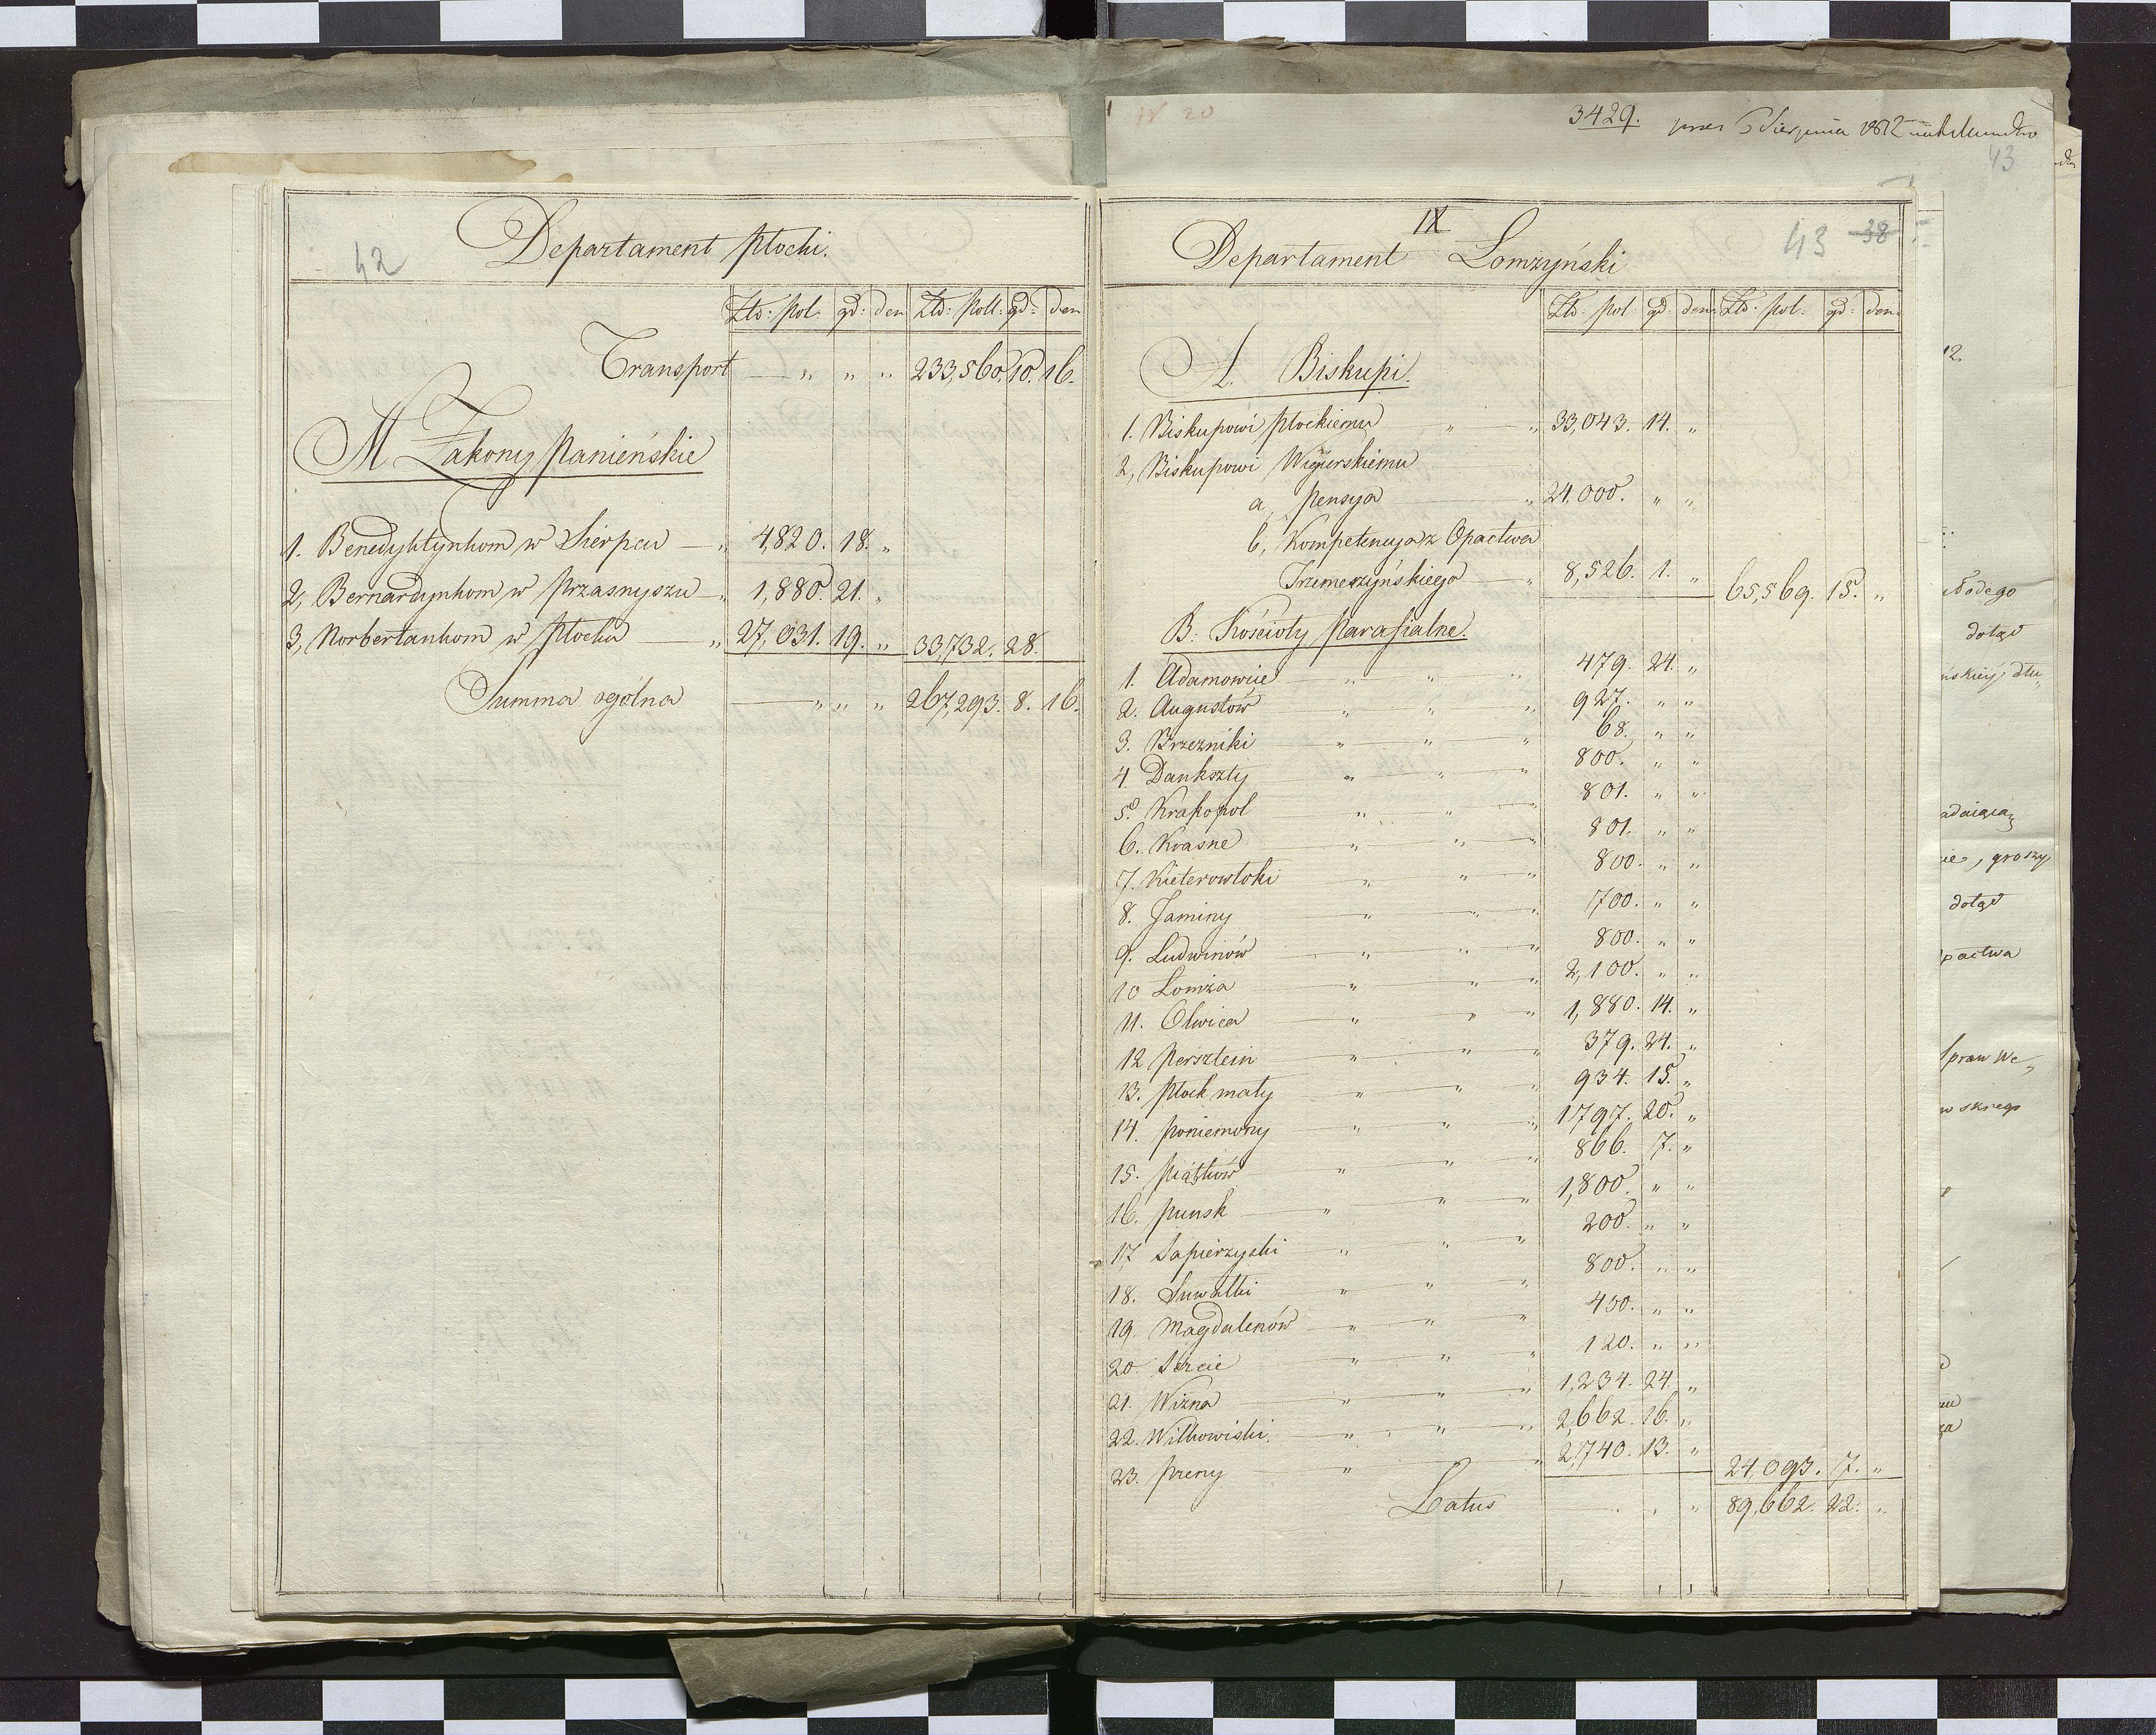 42
Departament Płocki.
Złо: Pol: gr: den Zło: Poll: gr: den
Transport — „ „ „ 233,560. 10. 16.
M Zakony Panieńskie
1. Benedyktynkom w Sierpcu — „ 4,820. 18. „
2, Bernardynkom w Przasnyszu — „ 1,880. 21. „
3, Norbertankom w Płocku — „ 27,031. 19. „ 33,732. 28.
Summa ogólna — „ „ „ 267,293. 8. 16.
20
3429.
Sierpnia 1812
43
IX
43 38
Departament Lomżyński
Zło: Pol gr: den: Zło: Pol: gr: den:
A. Biskupi.
1. Biskupowi Płockiemu „ „ 33,043. 14. „
2, Biskupowi Wigierskiemu
a, Pensya „ 24,000. „ „
b, Kompetencya z Opactwa
Trzemeszyńskiego — „ 8,526. 1. „ 65,569. 15. „
B: Kościoły Parafialne.
1. Adamowice „ „ „ 479. 24. „
2. Augustów „ „ „ 927. „ „
3. Brzezniki „ „ „ 68. „ „
4. Dankszty „ „ „ 800. „ „
5. Krakopol „ „ „ 801. „ „
6. Krasne „ „ „ 801. „ „
7. Kieterowłoki „ „ „ 800. „ „
8. Jaminy „ „ „ 700. „ „
9. Ludwinów „ „ „ 800. „ „
10 Lomża „ „ „ 2,100. „ „
11. Olwica „ „ „ 1,880. 14. „
12 Persztein „ „ „ 379. 24. „
13. Płock mały „ „ „ 934. 15. „
14. Poniemony „ „ „ 1797. 20. „
15. Piątków „ „ „ 866. 7. „
16. Punsk „ „ „ 1,800. „ „
17, Sapierzyski „ „ „ 200. „ „
18. Suwalki „ „ „ 800. „ „
19. Magdalenów „ „ „ 400. „ „
20 Sereie „ „ „ 120. „ „
21. Wizna „ „ „ 1,234. 24. „
22. Wilkowiski. „ „ „ 2,662. 16. „
23. Preny „ „ 2,740. 13. „ 24,093. 7. „
Latus „ „ 89,662. 22. „
12
dotąd
, groszy
dotąd